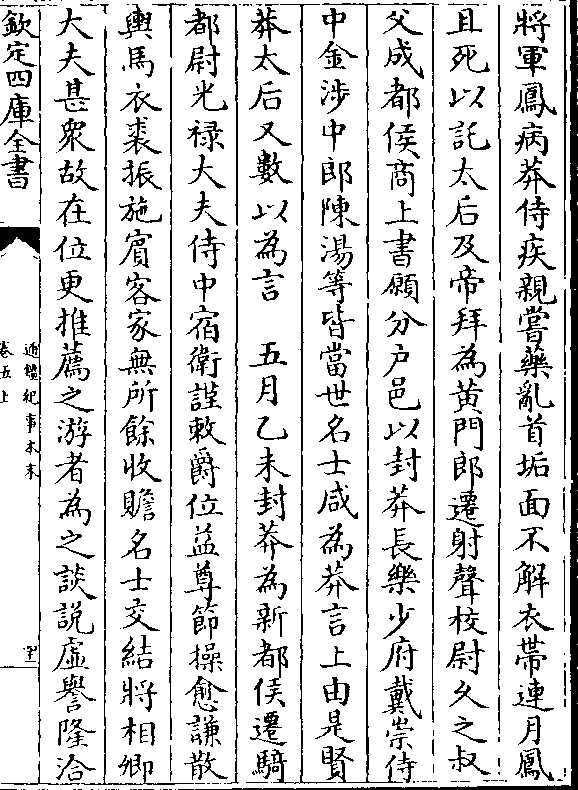 將軍鳳病莽侍疾親嘗藥亂首垢面不解衣帶連月鳳
且死以託太后及帝拜為黄門郎遷射聲校尉乆之叔
父成都侯商上書願分户邑以封莽長樂少府戴崇侍
中金涉中郎陳湯等皆當世名士咸為莽言上由是賢
莽太后又數以為言　五月乙未封莽為新都侯遷騎
都尉光禄大夫侍中宿衛謹敕爵位益尊節操愈謙散
輿馬衣裘振施賓客家無所餘收贍名士交結將相卿
大夫甚衆故在位更推薦之游者為之談說虛譽隆洽
欽定四庫全書
通鑑紀事本末
卷五上